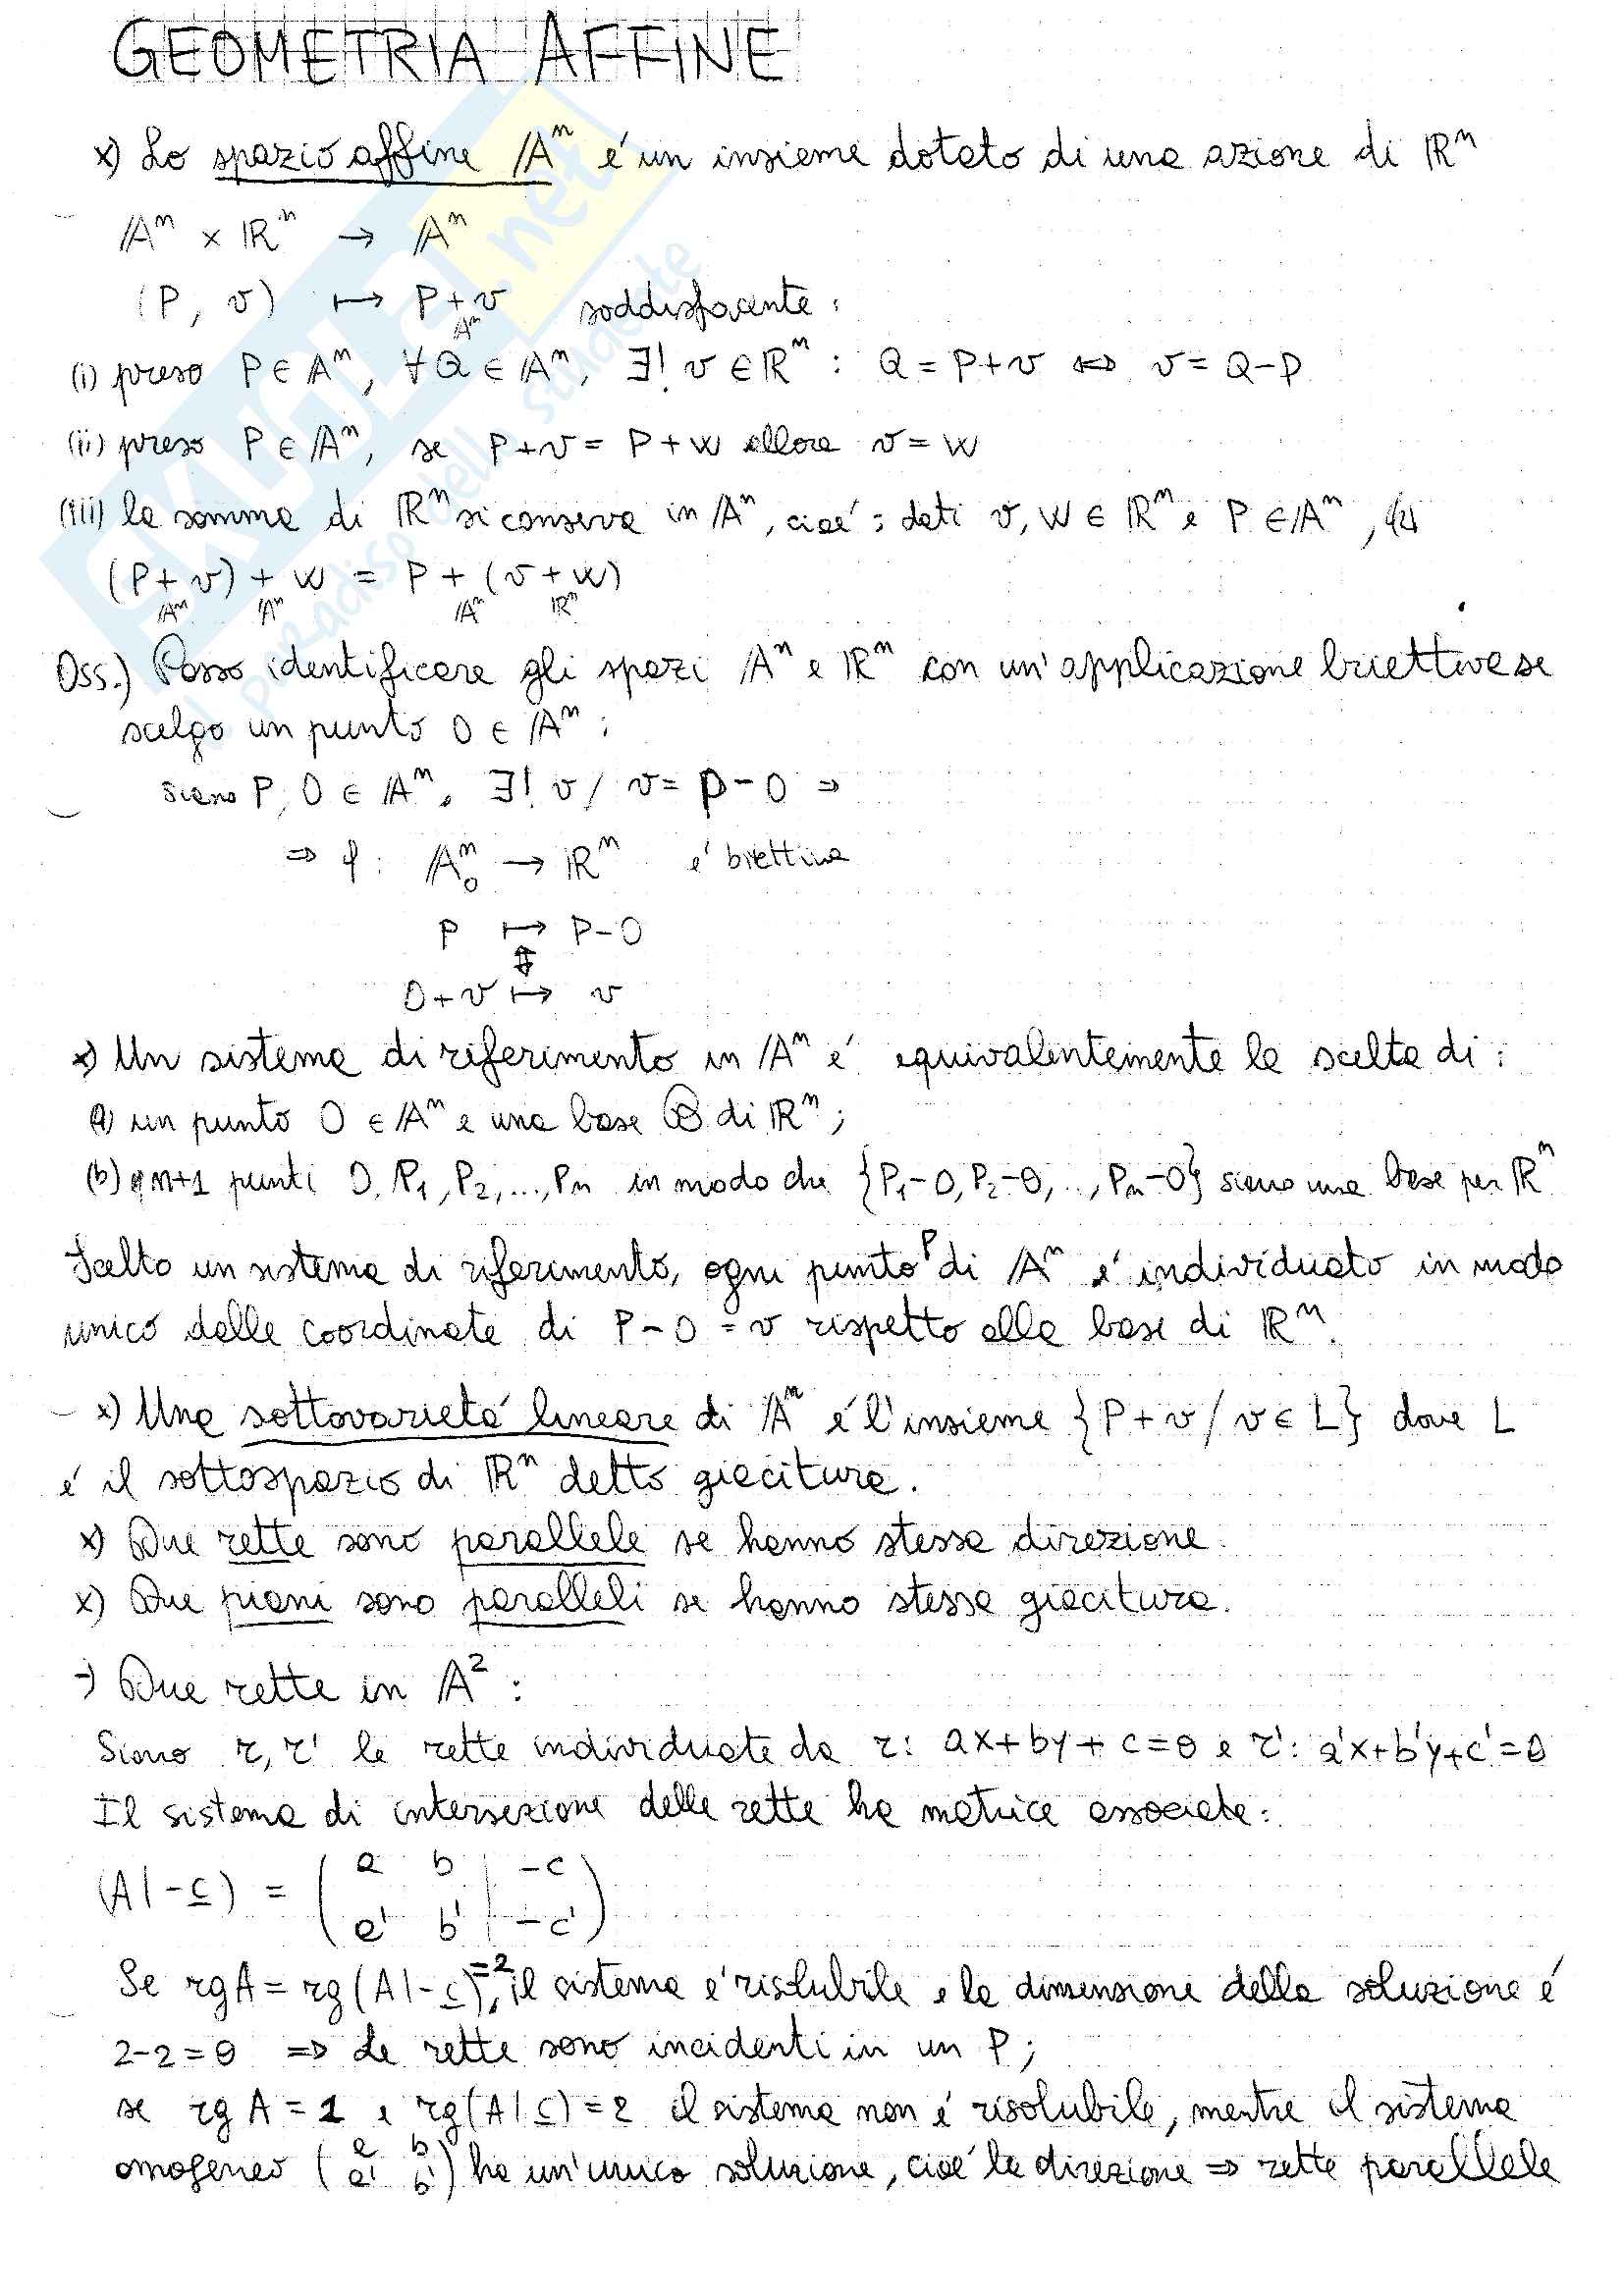 GEOMETRIA AFFINE
x) Lo spazio affine 𝔸ⁿ é un insieme dotato di una azione di ℝⁿ
𝔸ⁿ × ℝⁿ → 𝔸ⁿ
(P, v) ↦ P +_𝔸ⁿ v soddisfacente:
(i) preso P ∈ 𝔸ⁿ, ∀Q ∈ 𝔸ⁿ, ∃! v ∈ ℝⁿ : Q = P+v ⇔ v = Q-P
(ii) preso P ∈ 𝔸ⁿ, se P+v = P+w allora v = w
(iii) la somma di ℝⁿ si conserva in 𝔸ⁿ, cioé: dati v, w ∈ ℝⁿ e P ∈ 𝔸ⁿ,
(P +_𝔸ⁿ v) +_𝔸ⁿ w = P +_𝔸ⁿ (v +_ℝⁿ w)
Oss.) Posso identificare gli spazi 𝔸ⁿ e ℝⁿ con un'applicazione biiettiva se
scelgo un punto O ∈ 𝔸ⁿ:
siano P, O ∈ 𝔸ⁿ, ∃! v / v = P-O ⇒
⇒ f: 𝔸ⁿ_O → ℝⁿ é biiettiva
P ↦ P-O
⇕
O+v ↦ v
x) Un sistema di riferimento in 𝔸ⁿ é equivalentemente la scelta di:
(a) un punto O ∈ 𝔸ⁿ e una base ℬ di ℝⁿ;
(b) n+1 punti O, P₁, P₂, ..., Pₙ in modo che {P₁-O, P₂-O, ..., Pₙ-O} siano una base per ℝⁿ
Scelto un sistema di riferimento, ogni punto P di 𝔸ⁿ é individuato in modo
unico dalle coordinate di P-O = v rispetto alla base di ℝⁿ.
x) Una sottovarietá lineare di 𝔸ⁿ é l'insieme {P+v / v ∈ L} dove L
é il sottospazio di ℝⁿ detto giacitura.
x) Due rette sono parallele se hanno stessa direzione.
x) Due piani sono paralleli se hanno stessa giacitura.
→ Due rette in 𝔸²:
Siano r, r' le rette individuate da r: ax+by+c=0 e r': a'x+b'y+c'=0
Il sistema di intersezione delle rette ha matrice associata:
(A|-c) = ( a b | -c
a' b' | -c' )
Se rgA = rg(A|-c)=2, il sistema é risolubile e la dimensione della soluzione é
2-2=0 ⇒ Le rette sono incidenti in un P;
se rg A = 1 e rg(A|c) = 2 il sistema non é risolubile, mentre il sistema
omogeneo (a b a' b') ha un'unica soluzione, cioé la direzione ⇒ rette parallele